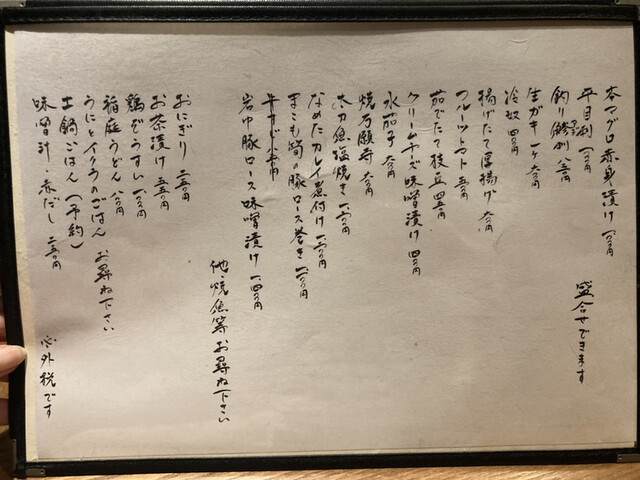 本マグロ赤身漬け
平目刺
釣り鯵刺 八二〇円
盛合せできます
生ガキ 一ケ 六〇〇円
冷奴 四〇〇円
揚げたて厚揚げ 六〇〇円
フルーツトマト 五〇〇円
茹でたて枝豆 四五〇円
クリームチーズ味噌漬け 四〇〇円
水茄子 六〇〇円
焼万願寺 六〇〇円
太刀魚塩焼き
なめたカレイ煮付け
まこも筍の豚ロース巻き
牛すじ
岩中豚ロース味噌漬け 一、四〇〇円
他・焼魚等お尋ね下さい
おにぎり 二五〇円
お茶漬け 五五〇円
鶏ぞうすい
稲庭うどん 八〇〇円
うにとイクラのごはん お尋ね下さい
土鍋ごはん（予約）
味噌汁・赤だし 二五〇円
外税です